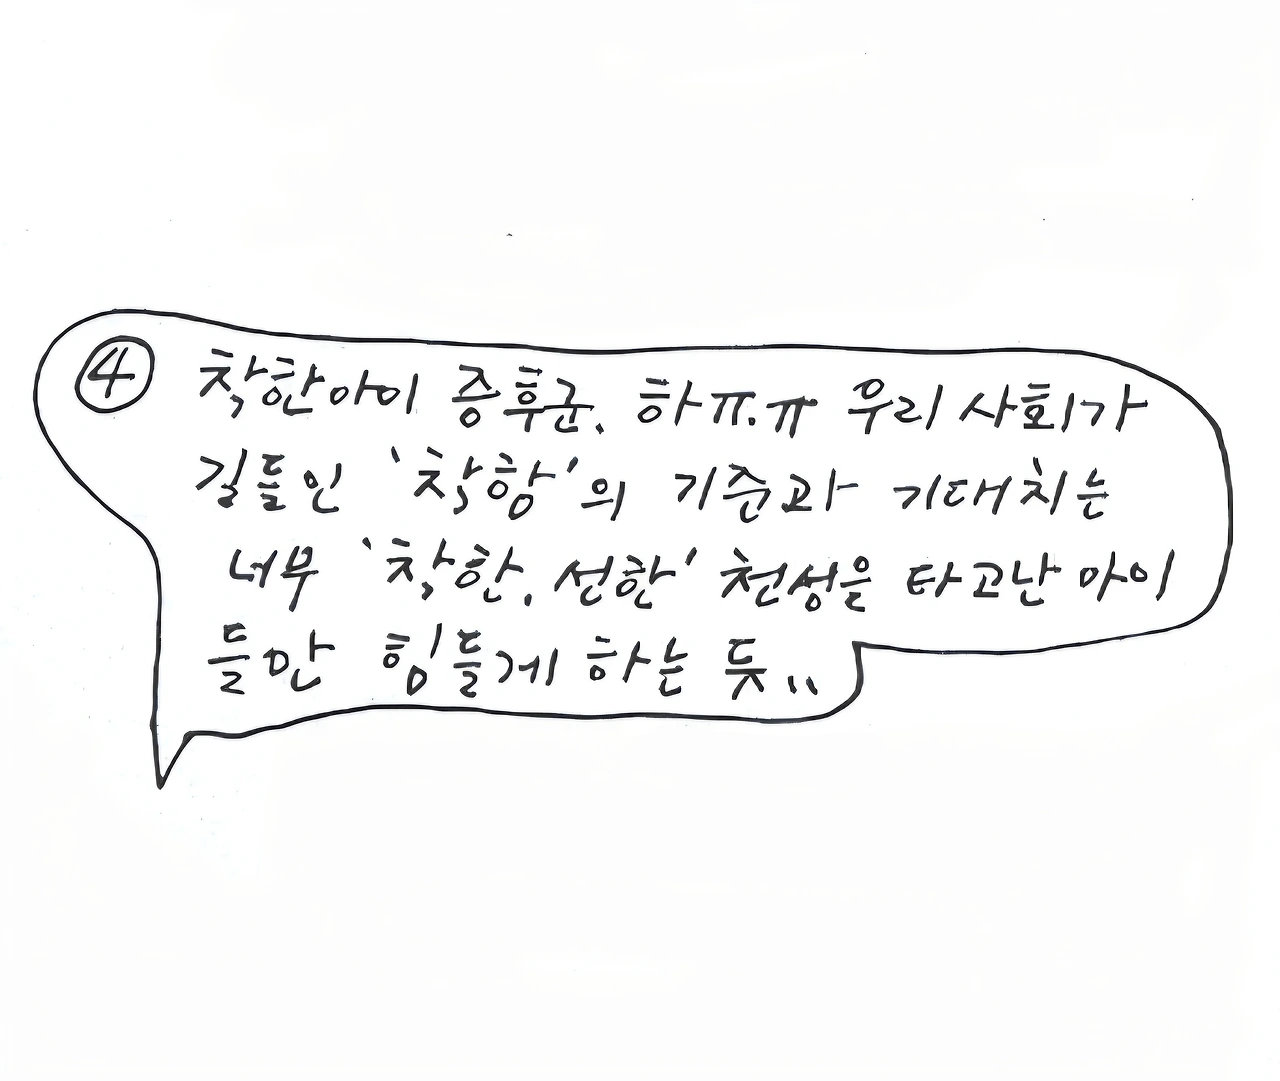 ④ 착한아이 증후군. 하ㅠ.ㅠ 우리 사회가
길들인 '착함'의 기준과 기대치는
너무 '착한. 선한' 천성을 타고난 아이
들만 힘들게 하는 듯..